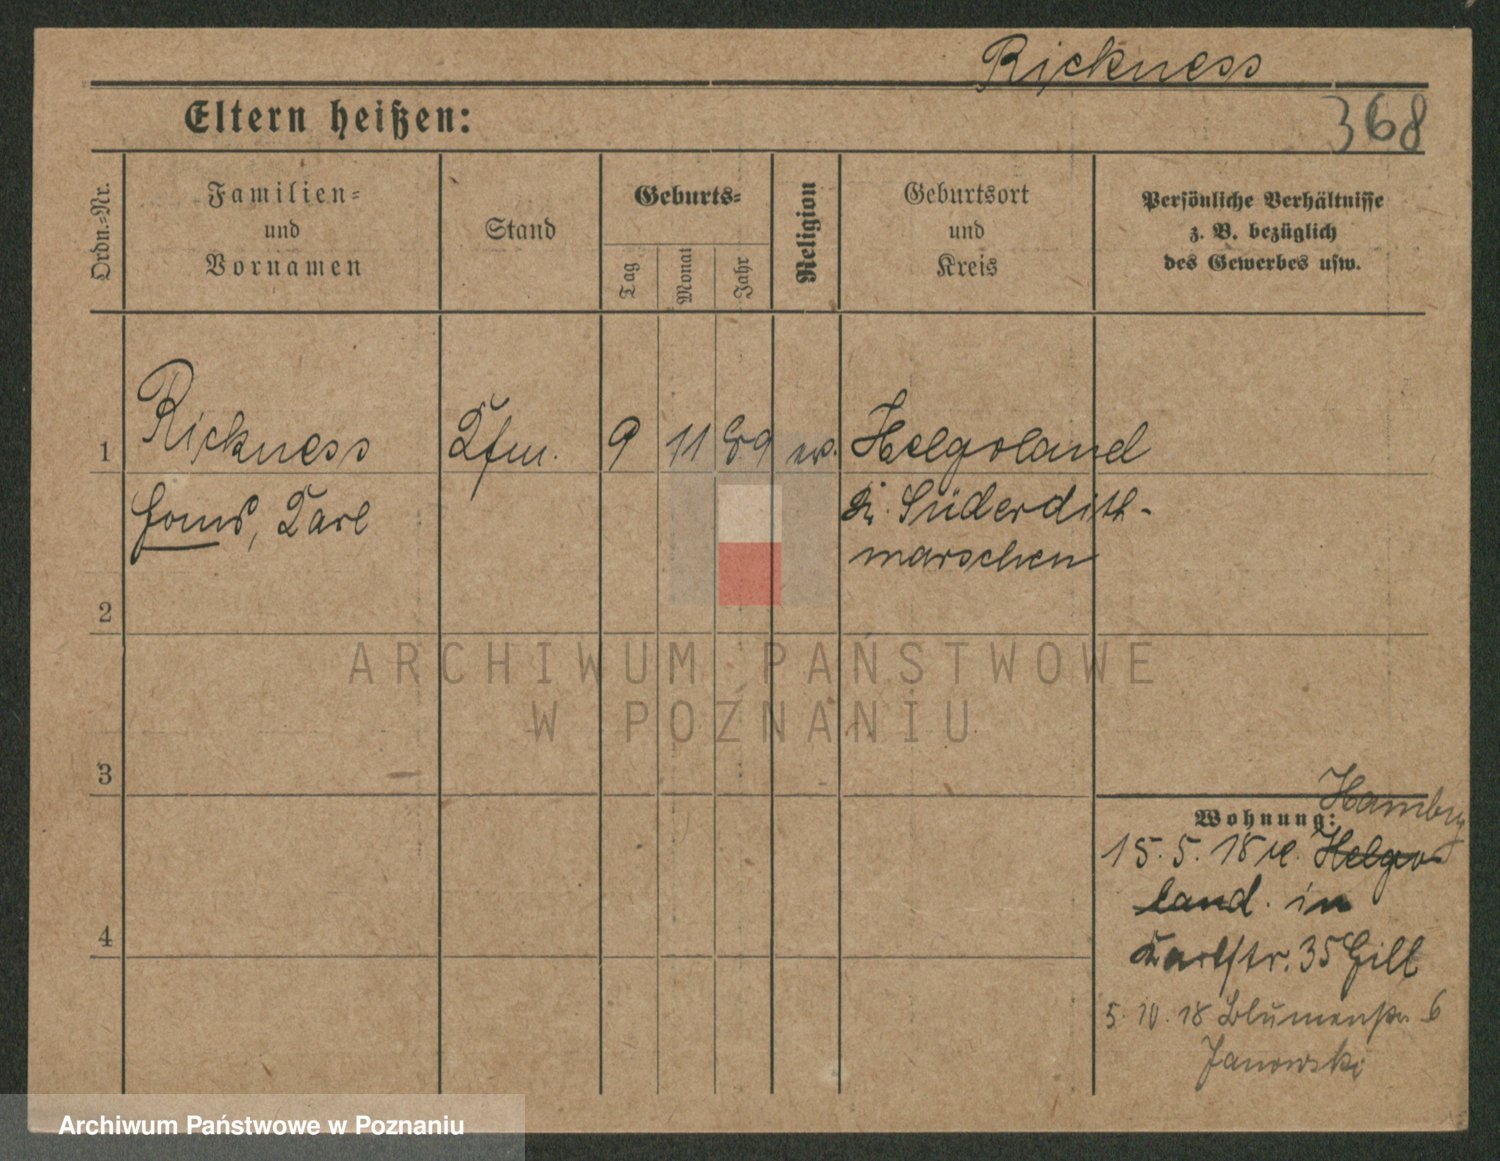 Rickness
Eltern heißen:
368
Ordn.-Nr.
Familien-
und
Vornamen
Stand
Geburts-
Tag
Monat
Jahr
Religion
Geburtsort
und
Kreis
Persönliche Verhältnisse
z. B. bezüglich
des Gewerbes usw.
1
Rickness
Kfm.
9
11
89
ev.
Helgoland
Kr. Süderdith-
marschen
Carl
2
ARCHIWUM PAŃSTWOWE
W POZNANIU
3
4
Wohnung:
Hambrg
15. 5. 18 v. Helgo
land. in
Karlstr. 35 Gill
5. 10. 18 Blumenstr. 6
Janowski
Archiwum Państwowe w Poznaniu